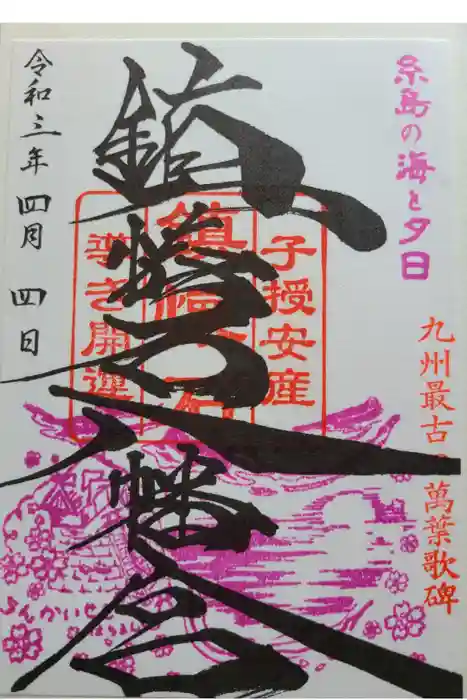 糸島の海と夕日
九州最古の萬葉歌碑
子授安産
鎮懐石
導き開運
鎮懐石八幡宮
令和三年 四月 四日